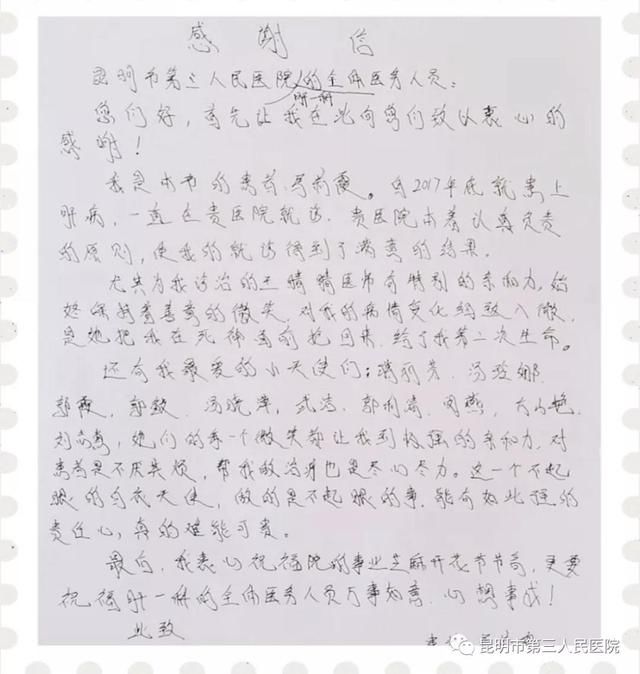 感谢信
昆明市第三人民医院肝一科的全体医务人员:
您们好,首先让我在此向您们致以衷心的
感谢!
我是本市的患者,马莉霞。自2017年底就患上
肝病,一直在贵医院就诊,贵医院本着认真负责
的原则,使我的就诊得到了满意的结果。
尤其为我诊治的王晴晴医师有特别的亲和力,始
终保持着善意的微笑,对我的病情变化细致入微,
是她把我在死神面前抢回来,给了我第二次生命。
还有我最爱的小天使们:丽芳、汤娜、
郭霞、郭敏、汤晓萍、武洁、郭利、周燕、
刘,她们的每一个微笑都让我感到极强的亲和力,对
患者是不厌其烦,帮我做治疗也是尽心尽力。这一个不起
眼的白衣天使,做的是不起眼的事,能有如此强的
责任心,真的难能可贵。
最后,我衷心祝福院的事业芝麻开花节节高,更要
祝福肝一科的全体医务人员万事如意,心想事成!
此致
昆明市第三人民医院